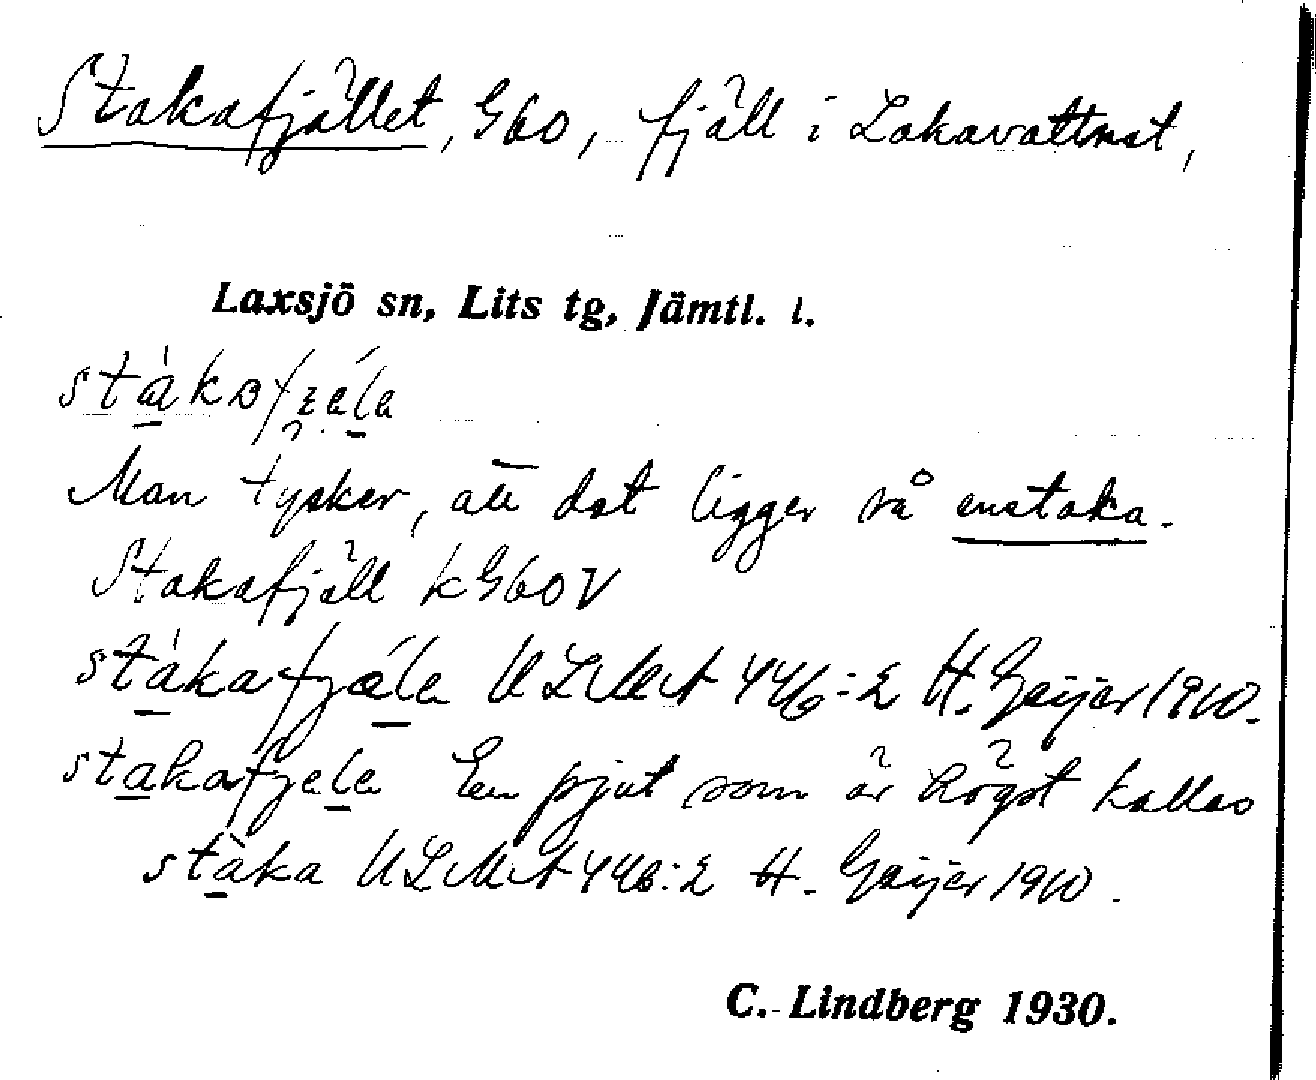 Stakafjället, G60, fjäll i Lakavattnet,
Laxsjö sn, Lits tg, Jämtl. l.
Man tycker, att det ligger så enstaka.
Stakafjäll k G60V
stàkafjǽla ULMA 446:2 H. Geijer 1910.
stakafjela En pjut som är högst kallas
stàka ULMA 446:2 H. Geijer 1910.
C. Lindberg 1930.